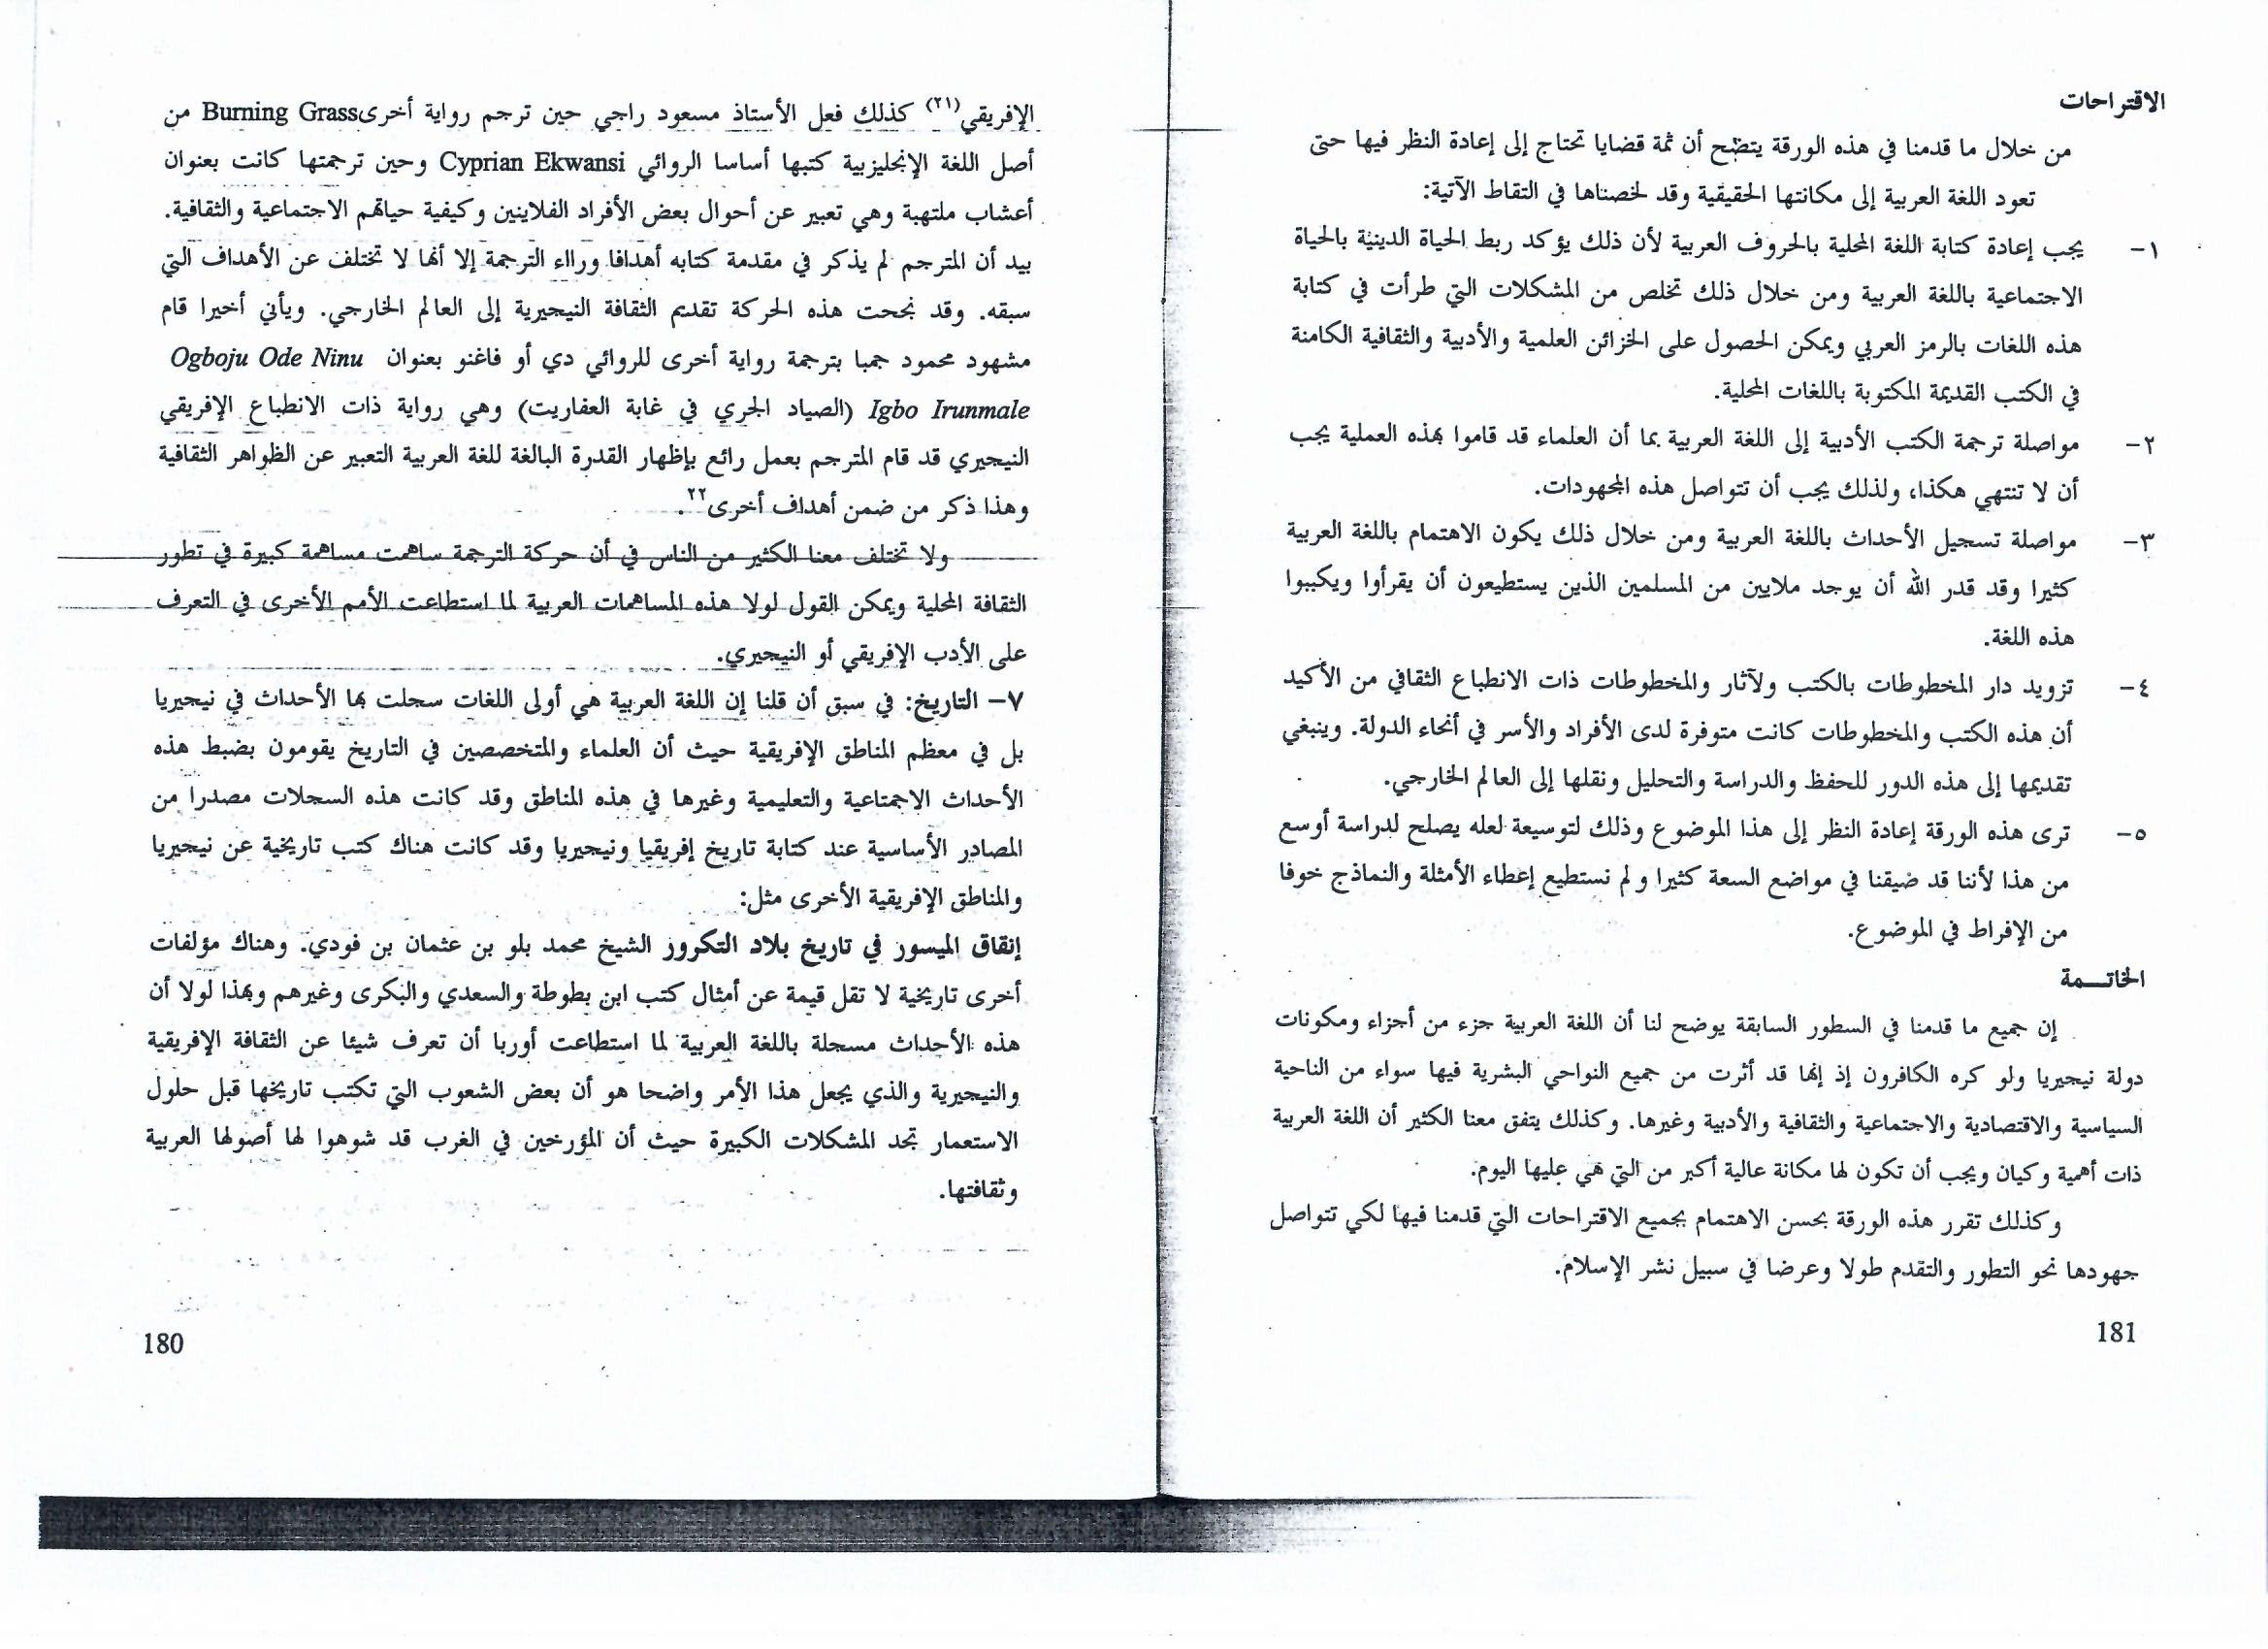 الإفريقي(٢١) كذلك فعل الأستاذ مسعود راجي حين ترجم رواية أخرىBurning Grass من
أصل اللغة الإنجليزبية كتبها أساسا الروائي Cyprian Ekwansi وحين ترجمتها كانت بعنوان
أعشاب ملتهبة وهي تعبير عن أحوال بعض الأفراد الفلاينين وكيفية حياتهم الاجتماعية والثقافية.
بيد أن المترجم لم يذكر في مقدمة كتابه أهدافا ورااء الترجمة إلا أنها لا تختلف عن الأهداف التي
سبقه. وقد نجحت هذه الحركة تقديم الثقافة النيجيرية إلى العالم الخارجي. ويأتي أخيرا قام
مشهود محمود جمبا بترجمة رواية أخرى للروائي دي أو فاغنو بعنوان Ogboju Ode Ninu
Igbo Irunmale (الصياد الجري في غابة العفاريت) وهي رواية ذات الانطباع الإفريقي
النيجيري قد قام المترجم بعمل رائع بإظهار القدرة البالغة للغة العربية التعبير عن الظواهر الثقافية
وهذا ذكر من ضمن أهداف أخرى٢٢.
ولا تختلف معنا الكثير من الناس في أن حركة الترجمة ساهمت مساهمة كبيرة في تطور
الثقافة المحلية ويمكن القول لولا هذه المساهمات العربية لما استطاعت الأمم الأخرى في التعرف
على الأدب الإفريقي أو النيجيري.
٧- التاريخ: في سبق أن قلنا إن اللغة العربية هي أولى اللغات سجلت بها الأحداث في نيجيريا
بل في معظم المناطق الإفريقية حيث أن العلماء والمتخصصين في التاريخ يقومون بضبط هذه
الأحداث الاجتماعية والتعليمية وغيرها في هذه المناطق وقد كانت هذه السجلات مصدرا من
المصادر الأساسية عند كتابة تاريخ إفريقيا ونيجيريا وقد كانت هناك كتب تاريخية عن نيجيريا
والمناطق الإفريقية الأخرى مثل:
إنقاق الميسور في تاريخ بلاد التكرور الشيخ محمد بلو بن عثمان بن فودي. وهناك مؤلفات
أخرى تاريخية لا تقل قيمة عن أمثال كتب ابن بطوطة والسعدي والبكرى وغيرهم وبهذا لولا أن
هذه الأحداث مسجلة باللغة العربية لما استطاعت أوربا أن تعرف شيئا عن الثقافة الإفريقية
والنيجيرية والذي يجعل هذا الأمر واضحا هو أن بعض الشعوب التي تكتب تاريخها قبل حلول
الاستعمار تجد المشكلات الكبيرة حيث أن المؤرخين في الغرب قد شوهوا لها أصولها العربية
وثقافتها.
180
الاقتراحات
من خلال ما قدمنا في هذه الورقة يتضح أن ثمة قضايا تحتاج إلى إعادة النظر فيها حتى
تعود اللغة العربية إلى مكانتها الحقيقية وقد لخصناها في التقاط الآتية:
١- يجب إعادة كتابة اللغة المحلية بالحروف العربية لأن ذلك يؤكد ربط الحياة الدينية بالحياة
الاجتماعية باللغة العربية ومن خلال ذلك تخلص من المشكلات التي طرأت في كتابة
هذه اللغات بالرمز العربي ويمكن الحصول على الخزائن العلمية والأدبية والثقافية الكامنة
في الكتب القديمة المكتوبة باللغات المحلية.
٢- مواصلة ترجمة الكتب الأدبية إلى اللغة العربية بما أن العلماء قد قاموا بهذه العملية يجب
أن لا تنتهي هكذا، ولذلك يجب أن تتواصل هذه المجهودات.
٣- مواصلة تسجيل الأحداث باللغة العربية ومن خلال ذلك يكون الاهتمام باللغة العربية
كثيرا وقد قدر الله أن يوجد ملايين من المسلمين الذين يستطيعون أن يقرأوا ويكببوا
هذه اللغة.
٤- تزويد دار المخطوطات بالكتب ولآثار والمخطوطات ذات الانطباع الثقافي من الأكيد
أن هذه الكتب والمخطوطات كانت متوفرة لدى الأفراد والأسر في أنحاء الدولة. وينبغي
تقديمها إلى هذه الدور للحفظ والدراسة والتحليل ونقلها إلى العالم الخارجي.
٥- ترى هذه الورقة إعادة النظر إلى هذا الموضوع وذلك لتوسيعة لعله يصلح لدراسة أوسع
من هذا لأننا قد ضيقنا في مواضع السعة كثيرا و لم نستطيع إعطاء الأمثلة والنماذج خوفا
من الإفراط في الموضوع.
الخاتـــمة
إن جميع ما قدمنا في السطور السابقة يوضح لنا أن اللغة العربية جزء من أجزاء ومكونات
دولة نيجيريا ولو كره الكافرون إذ إنها قد أثرت من جميع النواحي البشرية فيها سواء من الناحية
السياسية والاقتصادية والاجتماعية والثقافية والأدبية وغيرها. وكذلك يتفق معنا الكثير أن اللغة العربية
ذات أهمية وكيان ويجب أن تكون لها مكانة عالية أكبر من التي هي عليها اليوم.
وكذلك تقرر هذه الورقة بحسن الاهتمام بجميع الاقتراحات التي قدمنا فيها لكي تتواصل
جهودها نحو التطور والتقدم طولا وعرضا في سبيل نشر الإسلام.
181